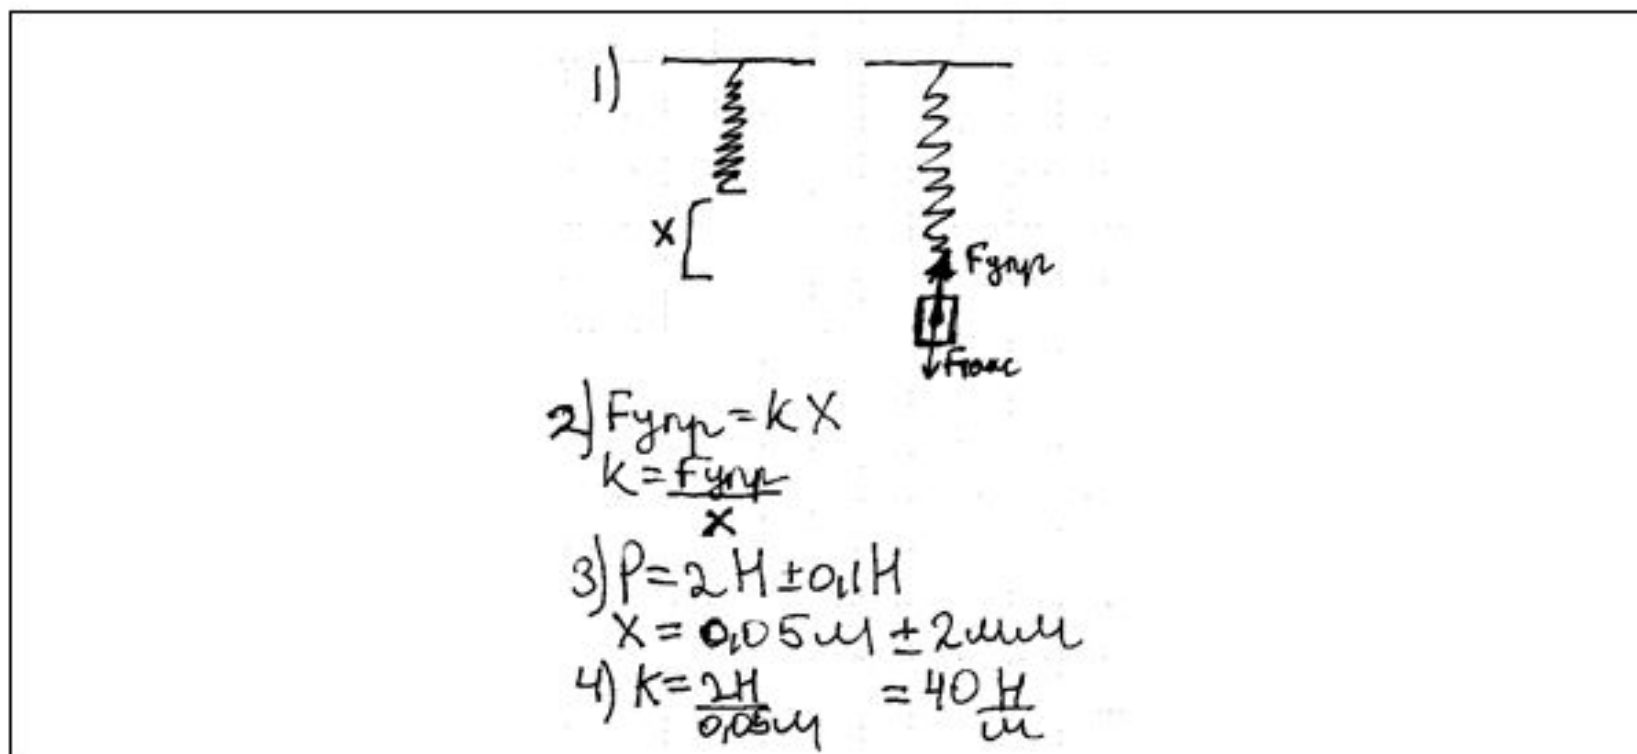 1)
x
Fупр
Fтяж
2) Fупр = kx
k = Fупр
x
3) P = 2 Н ± 0,1 Н
x = 0,05 м ± 2 мм
4) k = 2Н = 40 Н
0,05м м